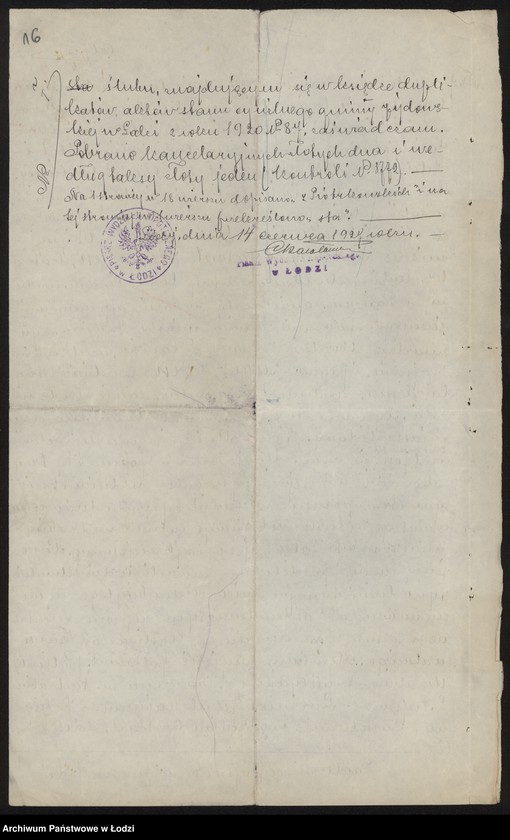 16
ślubu, znajdującym się w księdze dupli-
katów aktów stanu cywilnego gminy żydows-
kiej w Łodzi z roku 1920 № 84, zaświadczam.
Pobrano kancelaryjnych złotych dwa i we-
dług taksy złoty jeden (kontroli № 3792).
Na 1 stronicy w 18 wierszu dopisano "z Piotrkowskich" i na
tej stronicy w 1 wierszu przekreślono "sta".
dnia 14 czerwca 1924 roku.
W ŁODZI
Archiwum Państwowe w Łodzi